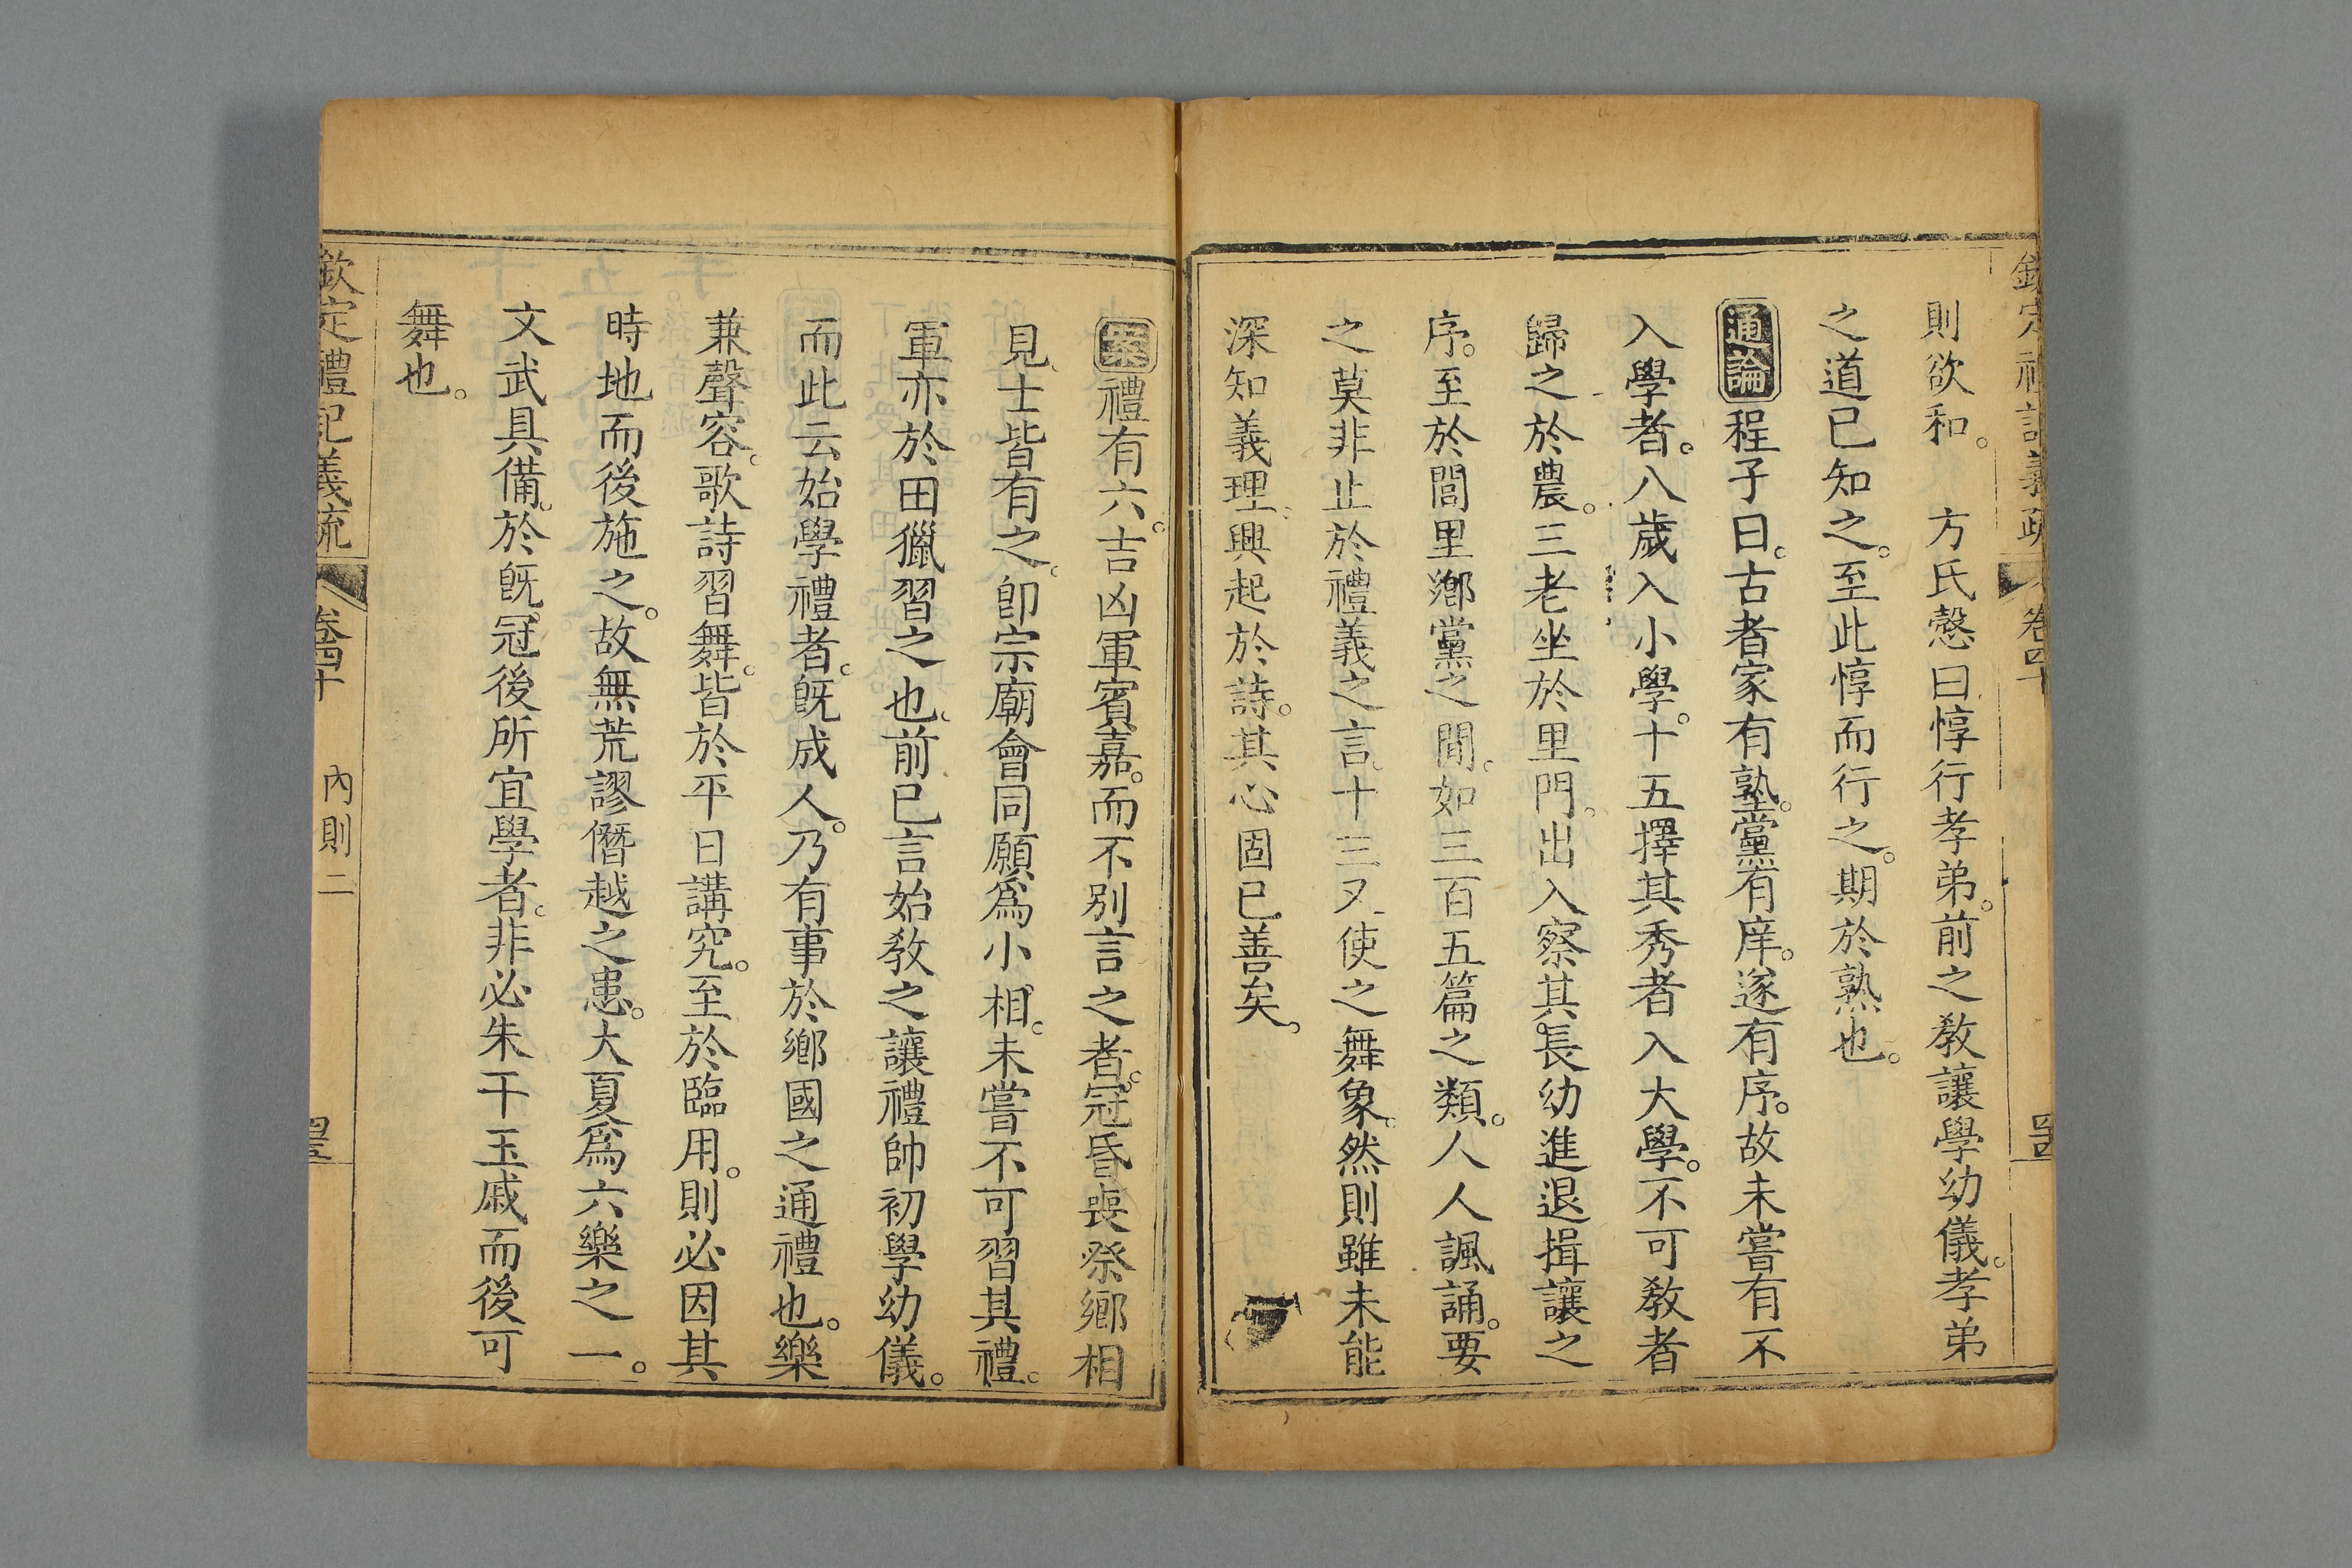 欽定禮記義疏 卷四十
則欲和。 方氏慤曰惇行孝弟。前之敎讓學幼儀。孝弟
之道已知之。至此惇而行之。期於熟也。
通論 程子曰。古者家有塾。黨有庠。遂有序。故未嘗有不
入學者。八歲入小學。十五擇其秀者入大學。不可敎者
歸之於農。三老坐於里門。出入察其長幼進退揖讓之
序。至於閭里鄉黨之間。如三百五篇之類。人人諷誦。要
之莫非止於禮義之言。十三又使之舞象。然則雖未能
深知義理。興起於詩。其心固已善矣。
案 禮有六。吉凶軍賓嘉。而不別言之者。冠昏喪祭鄉相
見、士皆有之。卽宗廟會同願爲小相。未嘗不可習其禮。
軍亦於田獵習之也。前已言始敎之讓禮帥初學幼儀。
而此云始學禮者。旣成人。乃有事於鄉國之通禮也。樂
兼聲容。歌詩習舞。皆於平日講究。至於臨用。則必因其
時地而後施之。故無荒謬僭越之患。大夏爲六樂之一。
文武具備。於旣冠後所宜學者。非必朱干玉戚而後可
舞也。
欽定禮記義疏 卷四十 內則二